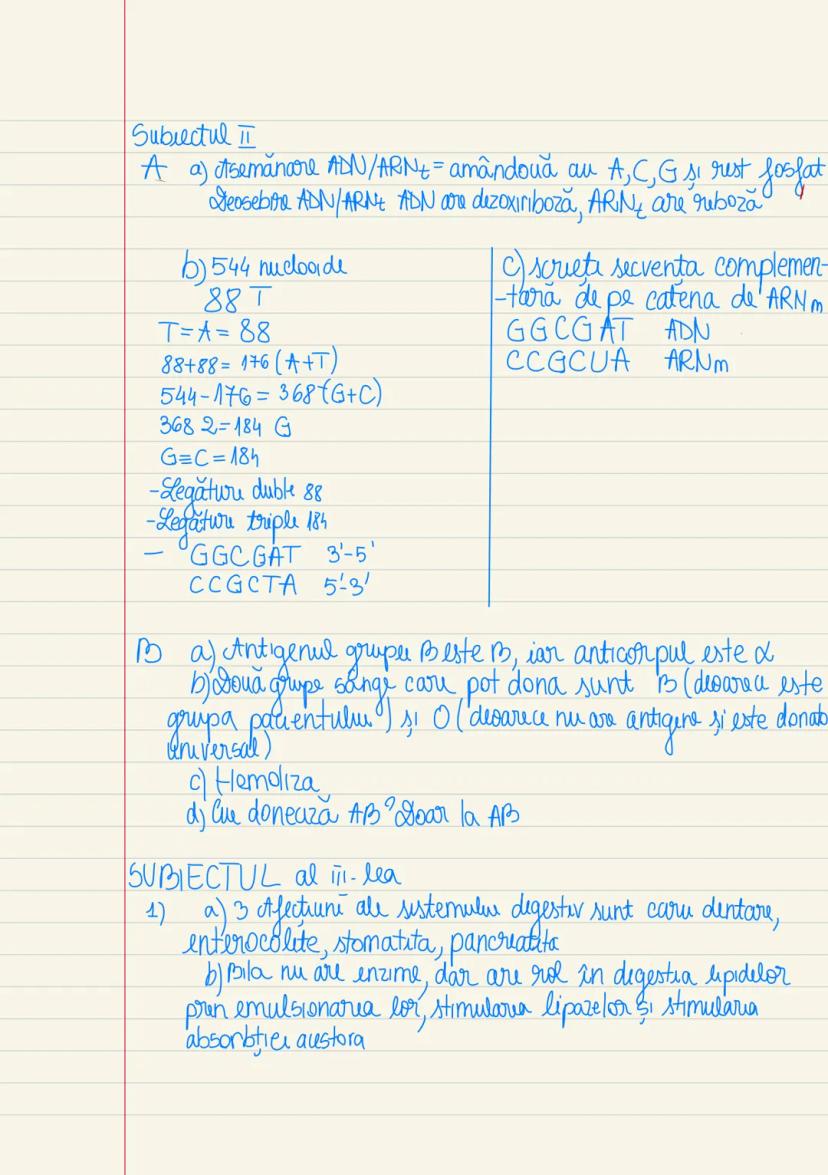 Subiectul II
A a) Asemănare ADN/ARNt = amândouă au A, C, G și rest fosfat
Deosebire ADN/ARNt ADN are dezoxiriboză, ARNt are riboză
b) 544 nucleotide
88 T
T=A= 88
88+88= 176 (A+T)
544-176= 368 (G+C)
368 2=184 G
G≡C=184
-Legături duble 88
-Legături triple 184
- GGCGAT 3'-5'
CCGCTA 5'-3'
c) scrieți secvența complemen-
-tară de pe catena de ARNm
GGCGAT ADN
CCGCUA ARNm
B a) Antigenul grupei B este B, iar anticorpul este α
b) Două grupe sânge care pot dona sunt B (deoarece este
grupa pacientului) și O (deoarece nu are antigene și este donato
universal)
c) Hemoliza
d) Cui donează AB? Doar la AB
SUBIECTUL al III-lea
1) a) 3 Afecțiuni ale sistemului digestiv sunt carii dentare,
enterocolite, stomatita, pancreatita
b) Bila nu are enzime, dar are rol în digestia lipidelor
prin emulsionarea lor, stimularea lipazelor și stimularea
absorbției acestora